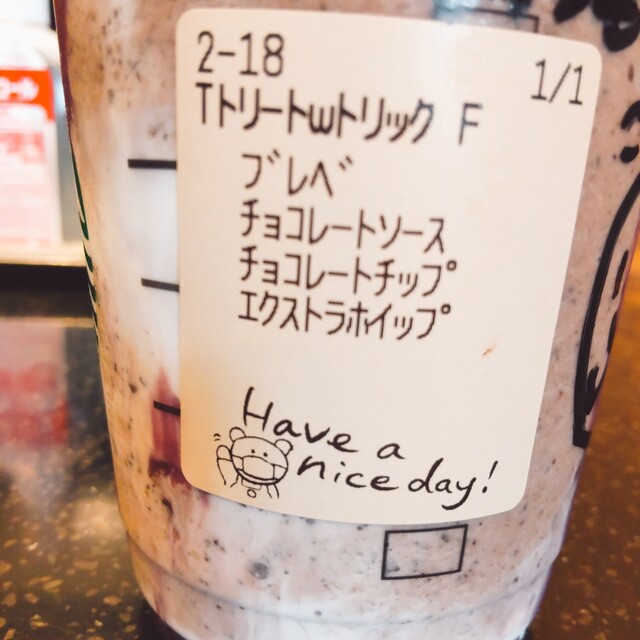 2-18 1/1
Tトリートwトリック F
ブレベ
チョコレートソース
チョコレートチップ
エクストラホイップ
Have a
nice day!